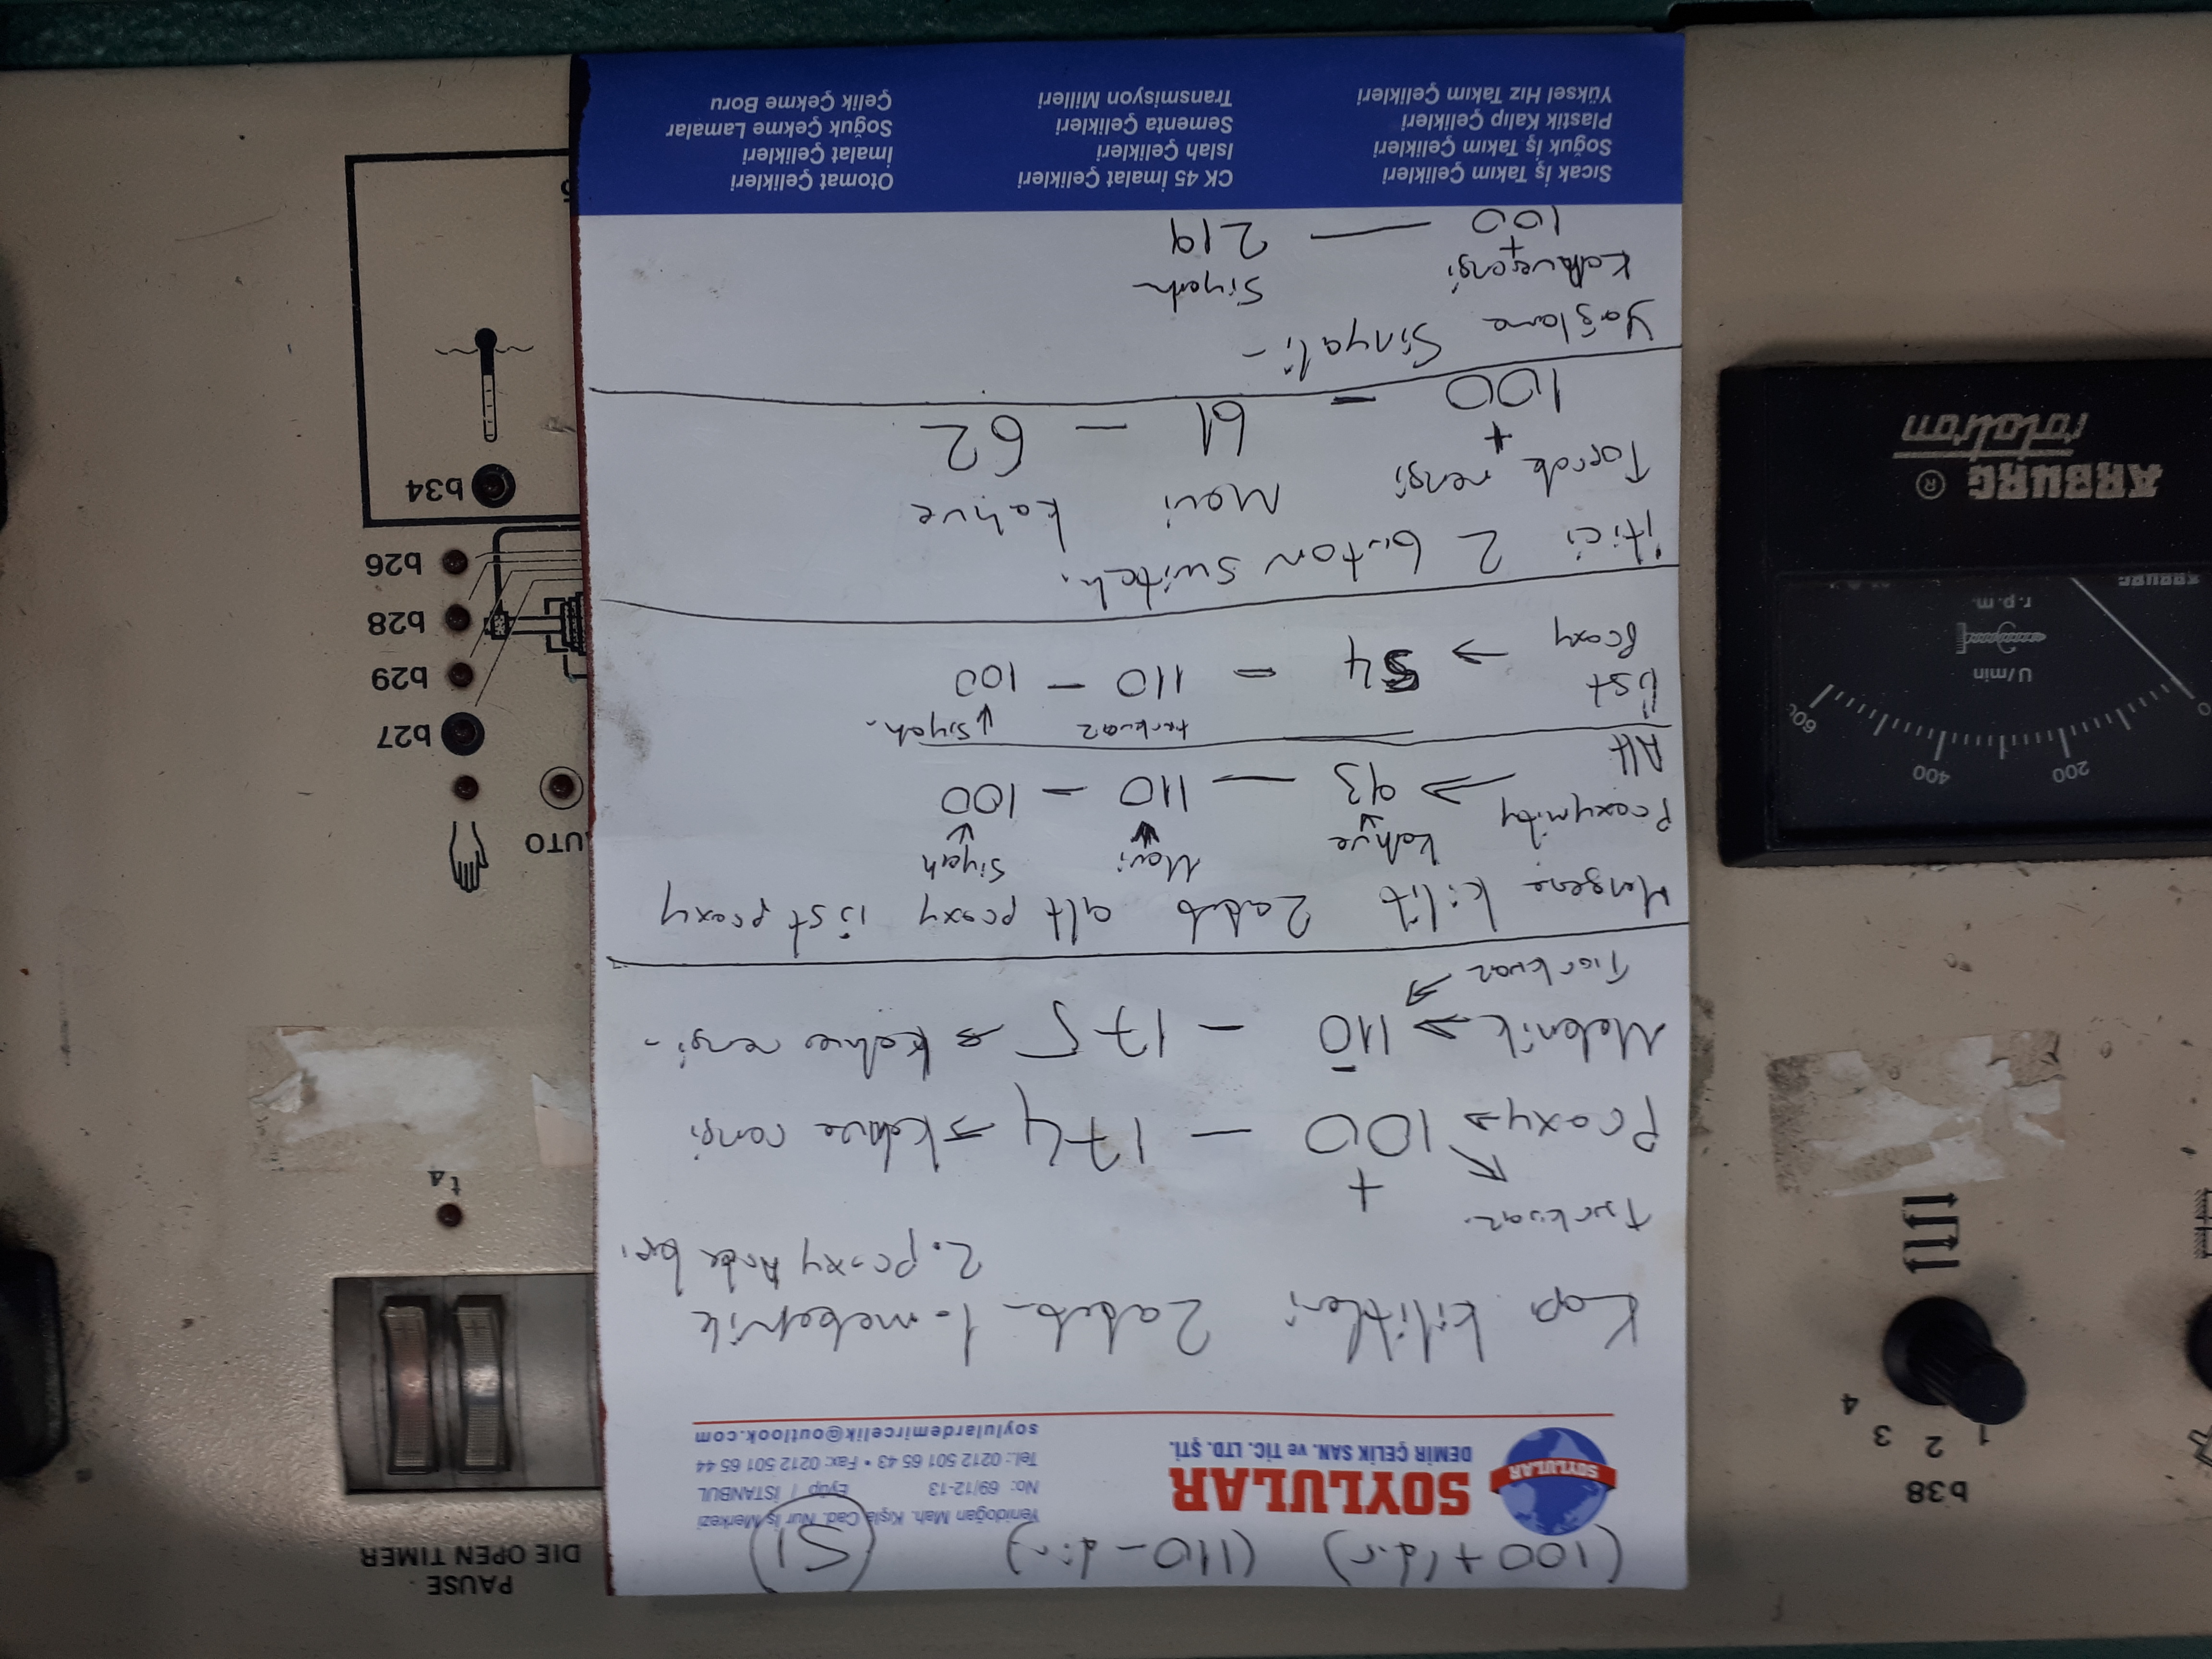 (100 + 'dır) (110 - dır) (S1)
SOYLULAR
SOYLULAR
DEMİR ÇELİK SAN. ve TİC. LTD. ŞTİ.
Yenidoğan Mah. Kışla Cad. Nur İş Merkezi
No: 69/12-13 Eyüp / İSTANBUL
Tel.: 0212 501 65 43 • Fax: 0212 501 65 44
soylulardemircelik@outlook.com
Kapı kilitleri 2 adet 1-mekenik
2.proxy
Turkuaz.
+
Proxy → 100 — 174 → kahve rengi
Mekenik → 110 — 175 → kahve rengi -
Turkuaz
Mengene kilit 2 adet alt proxy üst proxy
kahve Mavi Siyah
Proxymity → 93 — 110 — 100
Alt
turkuaz siyah.
Üst → 54 = 110 — 100
Proxy
İtici 2 buton switch.
Toprak rengi Mavi kahve
+
100 — 61 — 62
Yağlama Sinyali -
Kahverengi Siyah
+
100 — 219
Sıcak İş Takım Çelikleri
Soğuk İş Takım Çelikleri
Plastik Kalıp Çelikleri
Yüksel Hız Takım Çelikleri
CK 45 İmalat Çelikleri
Islah Çelikleri
Sementa Çelikleri
Transmisyon Milleri
Otomat Çelikleri
İmalat Çelikleri
Soğuk Çekme Lamalar
Çelik Çekme Boru
PAUSE
DIE OPEN TIMER
t4
UTO
b27
b29
b28
b26
b34
b38
1 2 3 4
0 200 400 600
U/min
r.p.m.
ARBURG ®
rotatron